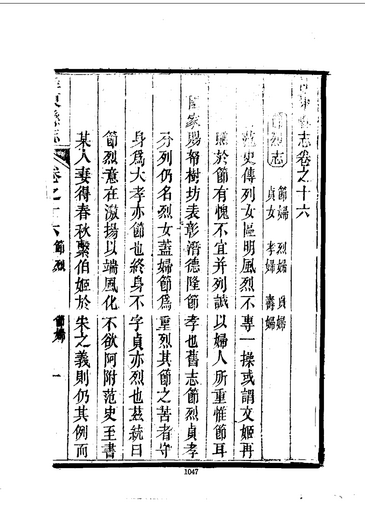 志卷之十六
節烈志
節婦 烈婦 貞婦
貞女 孝婦 壽婦
范史傳列女區明風烈不專一操或謂文姬再
醮於節有愧不宜并列誠以婦人所重惟節耳
國家賜帑樹坊表彰潛德隆節孝也舊志節烈貞孝
分列仍名烈女蓋婦節爲重烈其節之苦者守
身爲大孝亦節也終身不字貞亦烈也茲統曰
節烈意在激揚以端風化不欲阿附范史至書
某人妻得春秋繫伯姬於宋之義則仍其例而
縣志
卷之十六 節烈 節婦 一
1047